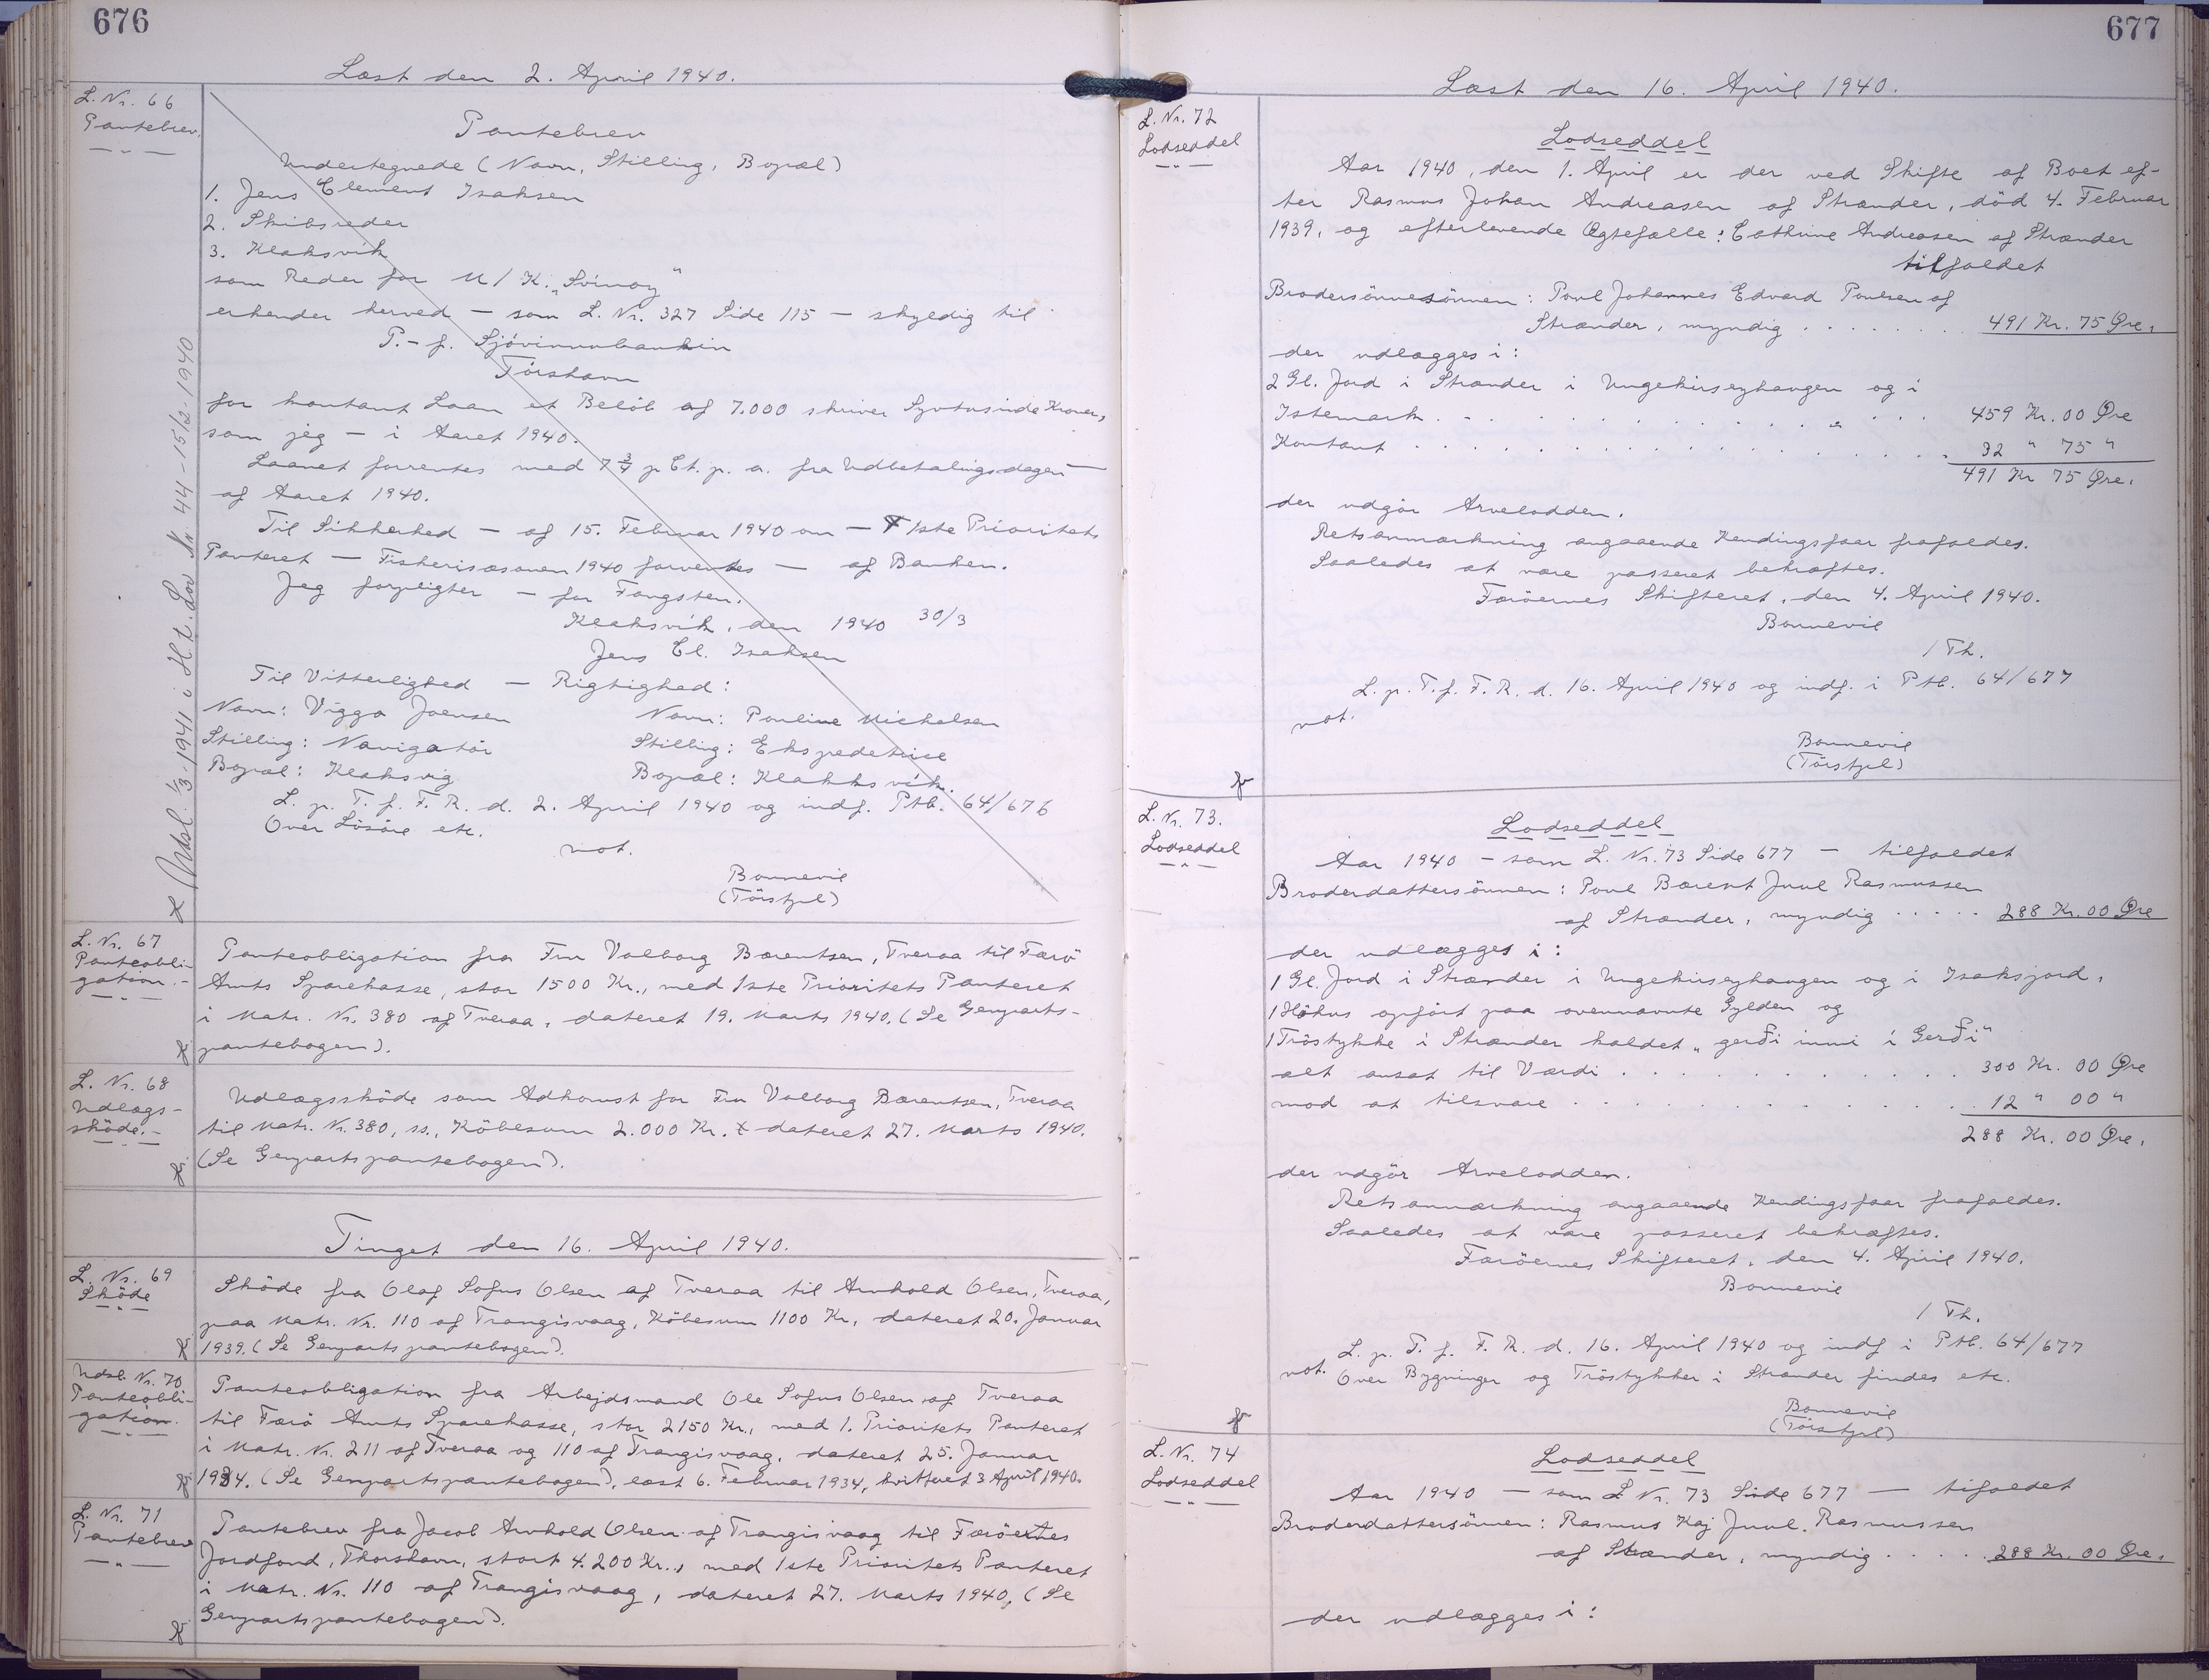 676
Læst den 2. April 1940.
L. Nr. 66
Pantebrev.
Pantebrev
Undertegnede (Navn, Stilling, Bopæl)
1. Jens Clement Isaksen
2. Skibsreder
3. Klaksvík
som Reder for M/K. „Svinoy"
erkender herved — som L. Nr. 327 Side 115 — skyldig til
P.-f. Sjóvinnubankin
Tórshavn
for kontant Laan et Beløb af 7.000 skriver Syvtusinde Kroner,
som jeg — i Aaret 1940.
Laanet forrentes med 7 3/4 p Ct. p. a. fra Udbetalingsdagen —
af Aaret 1940.
Til Sikkerhed — af 15. Februar 1940 om — 1ste Prioritets
Panteret — Fisherisæsonen 1940 forventes — af Banken.
Jeg forpligter — for Fangsten.
Klaksvík, den 1940 30/3
Jens Cl. Isaksen
Til Vitterlighed — Rigtighed:
Navn: Viggo Joensen Navn: Pauline Michelsen
Stilling: Navigatör Stilling: Ekspedetrice
Bopæl: Klaksvig Bopæl: Klakksvík.
L. p. T. f. F. R. d. 2. April 1940 og indf. Ptb. 64/676
Over Lösöre etc.
not.
Bonnevie
(Tórstpl)
Udsl. 1/3-1941 i H. t. Lov Nr. 44-15/2-1940
L. Nr. 67
Panteobli-
gation.-
Panteobligation fra Fru Valborg Bærentsen, Tveraa til Færö
Amts Sparekasse, stor 1500 Kr., med 1ste Prioritets Panteret
i Matr. Nr. 380 af Tveraa, dateret 19. Marts 1940. (Se Genparts-
pantebogen).
L. Nr. 68
Udlægs-
sköde.-
Udlægssköde som Adkomst for Fru Valborg Bærentsen, Tveraa
til Matr. Nr. 380, ss., Köbesum 2.000 Kr. dateret 27. Marts 1940.
(Se Genpartspantebogen).
Tinget den 16. April 1940.
L. Nr. 69
Sköde
Sköde fra Olaf Sofus Olsen af Tveraa til Arnhold Olsen, Tveraa,
paa Matr. Nr. 110 af Trangisvaag, Köbesum 1100 Kr, dateret 20. Januar
1939. (Se Genpartspantebogen).
Udsl. Nr. 70
Panteobli-
gation.
Panteobligation fra Arbejdsmand Ole Sofus Olsen af Tveraa
til Færö Amts Sparekasse, stor 2150 Kr., med 1. Prioritets Panteret
i Matr. Nr. 211 af Tveraa og 110 af Trangisvaag, dateret 25. Januar
1934. (Se Genpartspantebogen), læst 6. Februar 1934, kvitteret 3 April 1940.
L. Nr. 71
Pantebrev
Pantebrev fra Jacob Arnhold Olsen af Trangisvaag til Færöernes
Jordfond, Thorshavn, stort 4.200 Kr., med 1ste Prioritets Panteret
i Matr. Nr. 110 af Trangisvaag, dateret 27. Marts 1940, (Se
Genpartspantebogen).
677
Læst den 16. April 1940.
L. Nr. 72
Lodseddel
Lodseddel
Aar 1940, den 1. April er der ved Skifte af Boet ef-
ter Rasmus Johan Andreasen af Strænder, död 4. Februar
1939, og efterlevende Ægtefælle: Cathrine Andreasen af Strænder
tilfaldet
Brodersönnesönnen: Poul Johannes Edvard Poulsen af
Strænder, myndig . . . . . . . 491 Kr. 75 Øre.
der udlægges i:
2 Gl. Jord i Strænder i Ungekirseyhaugen og i
Istemark . . . . . . . . 459 Kr. 00 Øre
Kontant . . . . . . . . 32 " 75 "
491 Kr 75 Øre.
der udgör Arvelodden.
Retsanmærkning angaaende Kendingsfaar frafaldes.
Saaledes at være passeret bekræftes.
Færöernes Skifteret, den 4. April 1940.
Bonnevie
/ Th.
L. p. T. f. F. R. d. 16. April 1940 og indf. i Ptb. 64/677
not.
Bonnevie
(Tórstpl)
L. Nr. 73.
Lodseddel
Lodseddel
Aar 1940 — som L. Nr. 73 Side 677 — tilfaldet
Broderdattersönnen: Poul Bærent Juul Rasmussen
af Strænder, myndig . . . . . 288 Kr. 00 Øre
der udlægges i:
1 Gl. Jord i Strænder i Ungekirseyhaugen og i Isaksjord,
1 Höhus opfört paa ovennævnte Gylden og
1 Tröstykke i Strænder kaldet „gerði inni í Gerði"
alt ansat til Værdi . . . . . . . . 300 Kr. 00 Øre
mod at tilsvare . . . . . . . . 12 " 00 "
288 Kr. 00 Øre.
der udgör Arvelodden.
Retsanmærkning angaaende Kendingsfaar frafaldes.
Saaledes at være passeret bekræftes.
Færöernes Skifteret, den 4. April 1940.
Bonnevie
/ Th.
L. p. T. f. F. R. d. 16. April 1940 og indf i Ptb. 64/677
not. Over Bygninger og Tröstykker i Strænder findes etc.
Bonnevie
(Tórstpl)
L. Nr. 74
Lodseddel
Lodseddel
Aar 1940 — som L Nr. 73 Side 677 — tifaldet
Broderdattersönnen: Rasmus Kaj Juul Rasmussen
af Strænder, myndig . . . . . 288 Kr. 00 Øre.
der udlægges i: